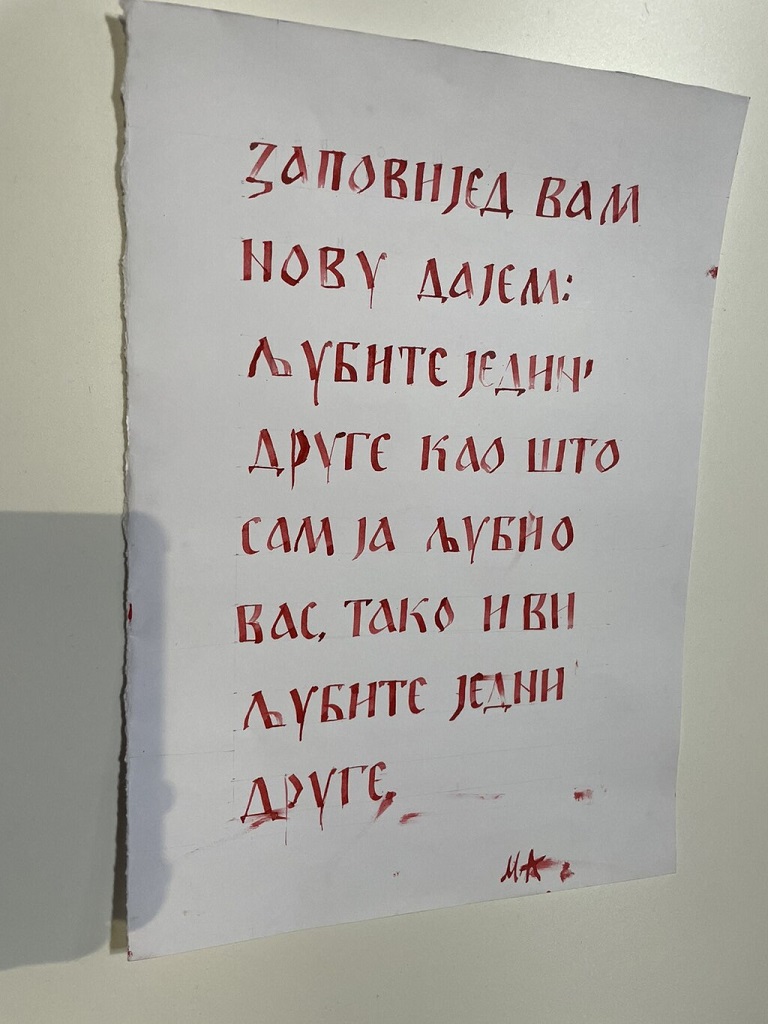 ЗАПОВИЈЕД ВАМ
НОВУ ДАЈЕМ:
ЉУБИТЕ ЈЕДИН'
ДРУГЕ КАО ШТО
САМ ЈА ЉУБИО
ВАС, ТАКО И ВИ
ЉУБИТЕ ЈЕДНИ
ДРУГЕ.
МА